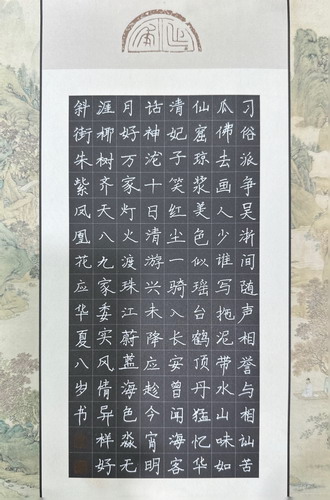 习俗派争吴浙间随声相誉与相讪苦
瓜佛去画人少谁写拖泥带水山味如
仙窟琼浆美色似瑶台鹤顶丹猛忆华
清妃子笑红尘一骑入长安曾闻海客
话神泷十日清游兴未降应趁今宵明
月好万家灯火渡珠江蔚蓝海色淼无
涯椰树齐天八九家委实风情异样好
斜街朱紫凤凰花应华夏八岁书